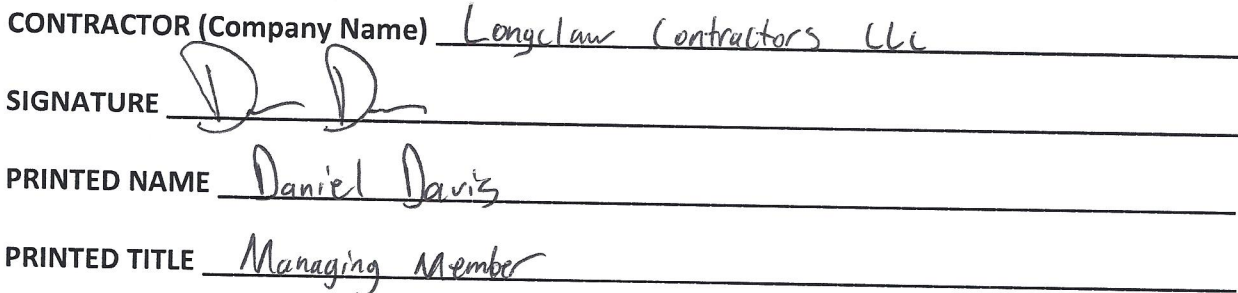 CONTRACTOR (Company Name) Longclaw Contractors LLC
SIGNATURE
PRINTED NAME Daniel Davis
PRINTED TITLE Managing Member